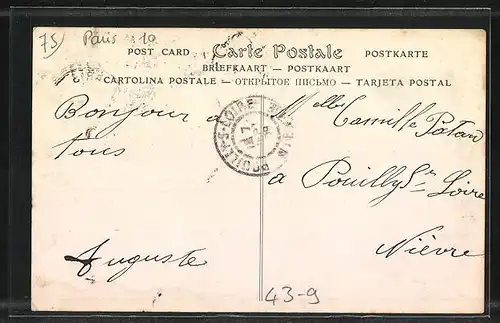 75 Paris 10
POST CARD Carte Postale POSTKARTE
BRIEFKAART — POSTKAART
CARTOLINA POSTALE — ОТКРЫТОЕ ПИСЬМО — TARJETA POSTAL
Bonjour à
tous
Auguste
POUILLY-S-LOIRE
NIÈVRE
Melle Camille Patau
à Pouilly S/r Loire
Nièvre
43-9